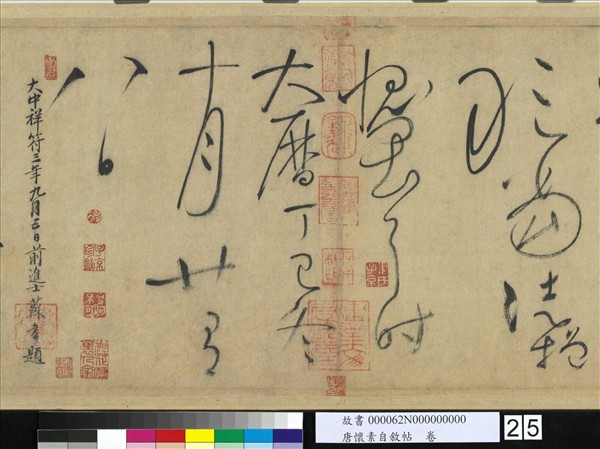 敢當徒增
愧畏耳時
大曆丁巳冬
十月廿有
八日
大中祥符三年九月五日前進士蘇耆題
故書 000062N000000000
唐懷素自敘帖 卷
25